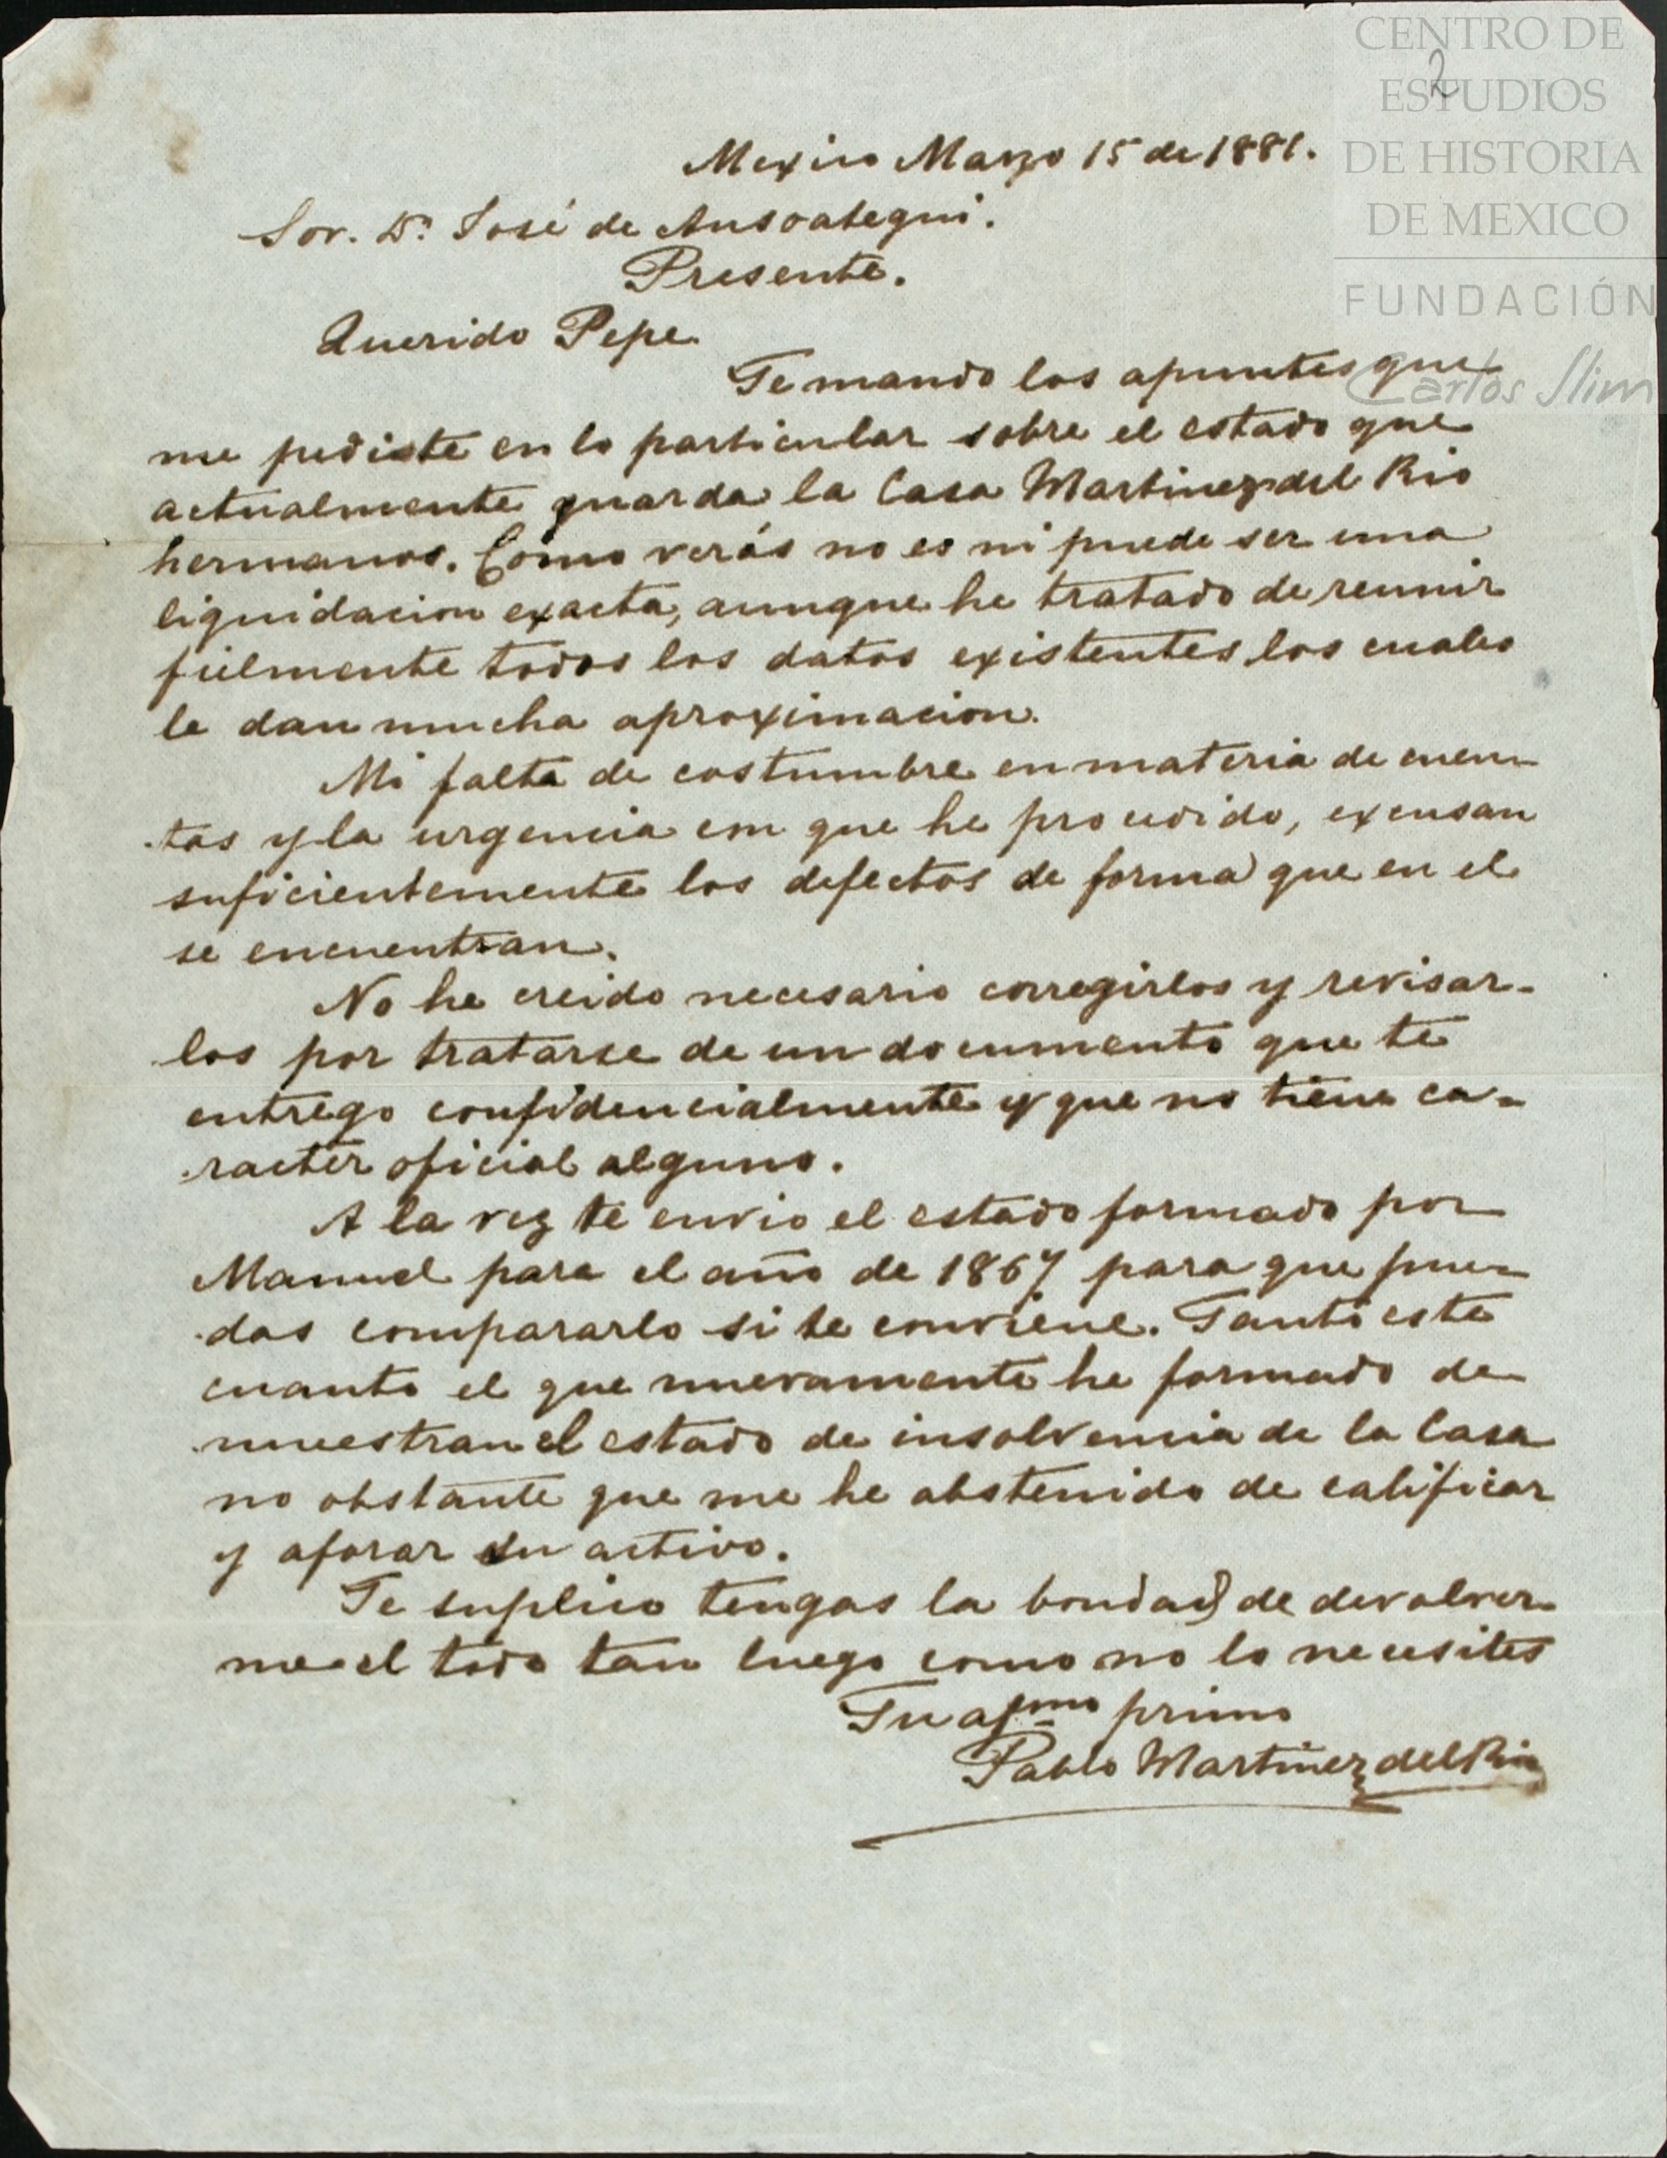 CENTRO DE
ESTUDIOS
DE HISTORIA
DE MEXICO
FUNDACIÓN
Carlos Slim
2
Mexico Marzo 15 de 1881.
Sor. Dn. José de Ansoategui.
Presente.
Querido Pepe
Te mando los apuntes que
me pediste en lo particular sobre el estado que
actualmente guarda la Casa Martinez del Rio
hermanos. Como verás no es ni puede ser una
liquidacion exacta, aunque he tratado de reunir
fielmente todos los datos existentes los cuales
le dan mucha aproximacion.
Mi falta de costumbre en materia de cuen-
tas y la urgencia con que he procedido, excusan
suficientemente los defectos de forma que en el
se encuentran.
No he creido necesario corregirlos y revisar-
los por tratarse de un documento que te
entrego confidencialmente y que no tiene ca-
racter oficial alguno.
A la vez te envio el estado formado por
Manuel para el año de 1867 para que pue-
das compararlo si te conviene. Tanto este
cuanto el que nuevamente he formado de-
muestran el estado de insolvencia de la Casa
no obstante que me he abstenido de calificar
y aforar su activo.
Te suplico tengas la bondad de devolver-
me el todo tan luego como no lo necesites
Tu afmo primo
Pablo Martinez del Rio